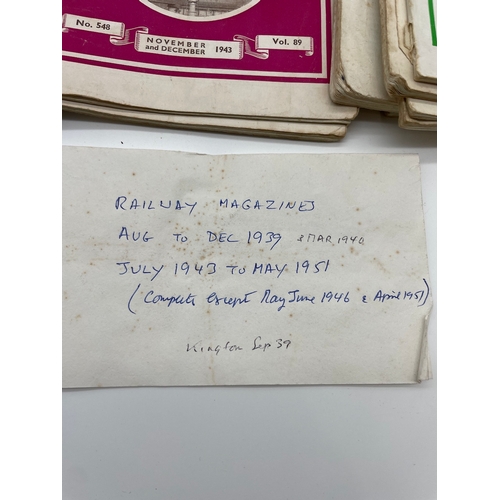 No. 548
NOVEMBER
and DECEMBER 1943
Vol. 89
RAILWAY MAGAZINES
AUG TO DEC 1939 & MAR 1940
JULY 1943 TO MAY 1951
(Complete except May June 1946 & April 1951)
Sep 39